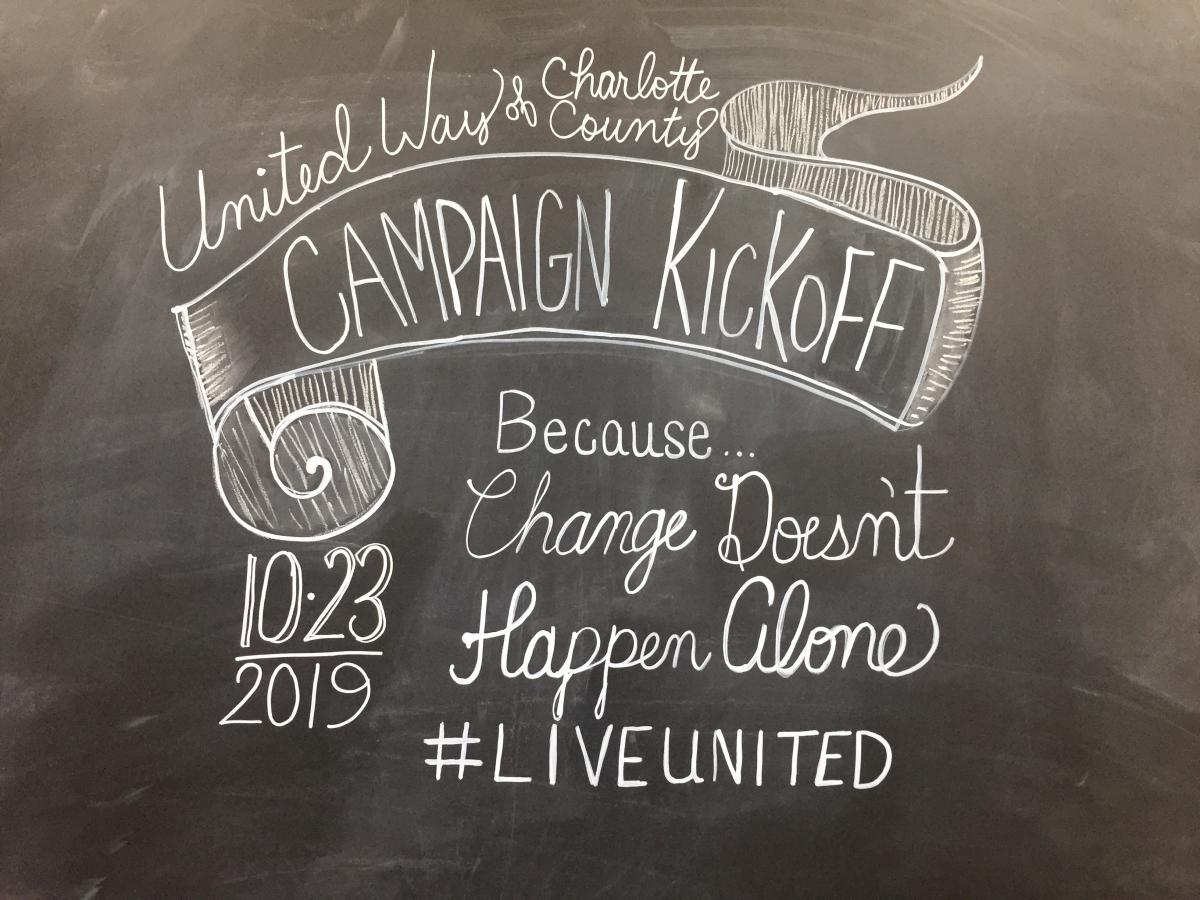 United Way of Charlotte County
CAMPAIGN KICKOFF
Because...
Change Doesn't
Happen Alone
#LIVEUNITED
10·23
2019